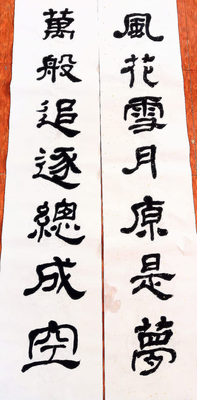 風花雪月原是夢
萬般追逐總成空